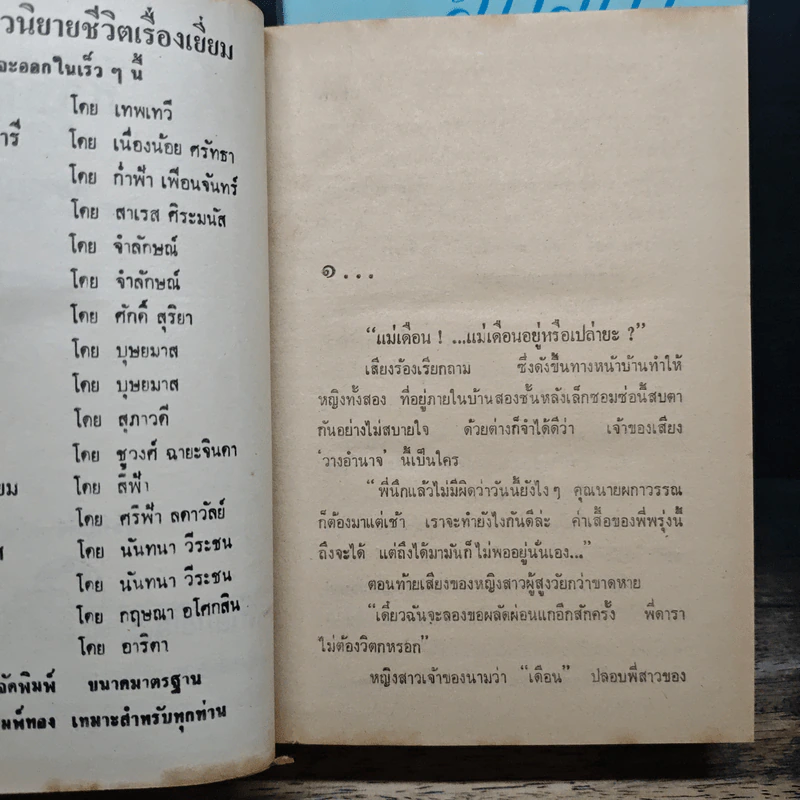 วนิยายชีวิตเรื่องเยี่ยม
จะออกในเร็ว ๆ นี้
โดย เทพเทวี
ารี โดย เนื่องน้อย ศรัทธา
โดย ก่ำฟ้า เพื่อนจันทร์
โดย สาเรส ศิระมนัส
โดย จำลักษณ์
โดย จำลักษณ์
โดย ศักดิ์ สุริยา
โดย บุษยมาส
โดย บุษยมาส
โดย สุภาวดี
โดย ชูวงศ์ ฉายะจินดา
ยม โดย สีฟ้า
โดย ศรีฟ้า ลดาวัลย์
ส โดย นันทนา วีระชน
โดย นันทนา วีระชน
โดย กฤษณา อโศกสิน
โดย อาริตา
จัดพิมพ์ ขนาดมาตรฐาน
มพ์ทอง เหมาะสำหรับทุกท่าน
๑...
“แม่เดือน ! ...แม่เดือนอยู่หรือเปล่ายะ ?”
เสียงร้องเรียกถาม ซึ่งดังขึ้นทางหน้าบ้านทำให้
หญิงทั้งสอง ที่อยู่ภายในบ้านสองชั้นหลังเล็กซอมซ่อนี้สบตา
กันอย่างไม่สบายใจ ด้วยต่างก็จำได้ดีว่า เจ้าของเสียง
‘วางอำนาจ’ นี้เป็นใคร
“พี่นึกแล้วไม่มีผิดว่าวันนี้ยังไง ๆ คุณนายผกาวรรณ
ก็ต้องมาแต่เช้า เราจะทำยังไงกันดีล่ะ ค่าเสื้อของพี่พรุ่งนี้
ถึงจะได้ แต่ถึงได้มามันก็ไม่พออยู่นั่นเอง...”
ตอนท้ายเสียงของหญิงสาวผู้สูงวัยกว่าขาดหาย
“เดี๋ยวฉันจะลองขอผลัดผ่อนแกอีกสักครั้ง พี่ดารา
ไม่ต้องวิตกหรอก”
หญิงสาวเจ้าของนามว่า “เดือน” ปลอบพี่สาวของ